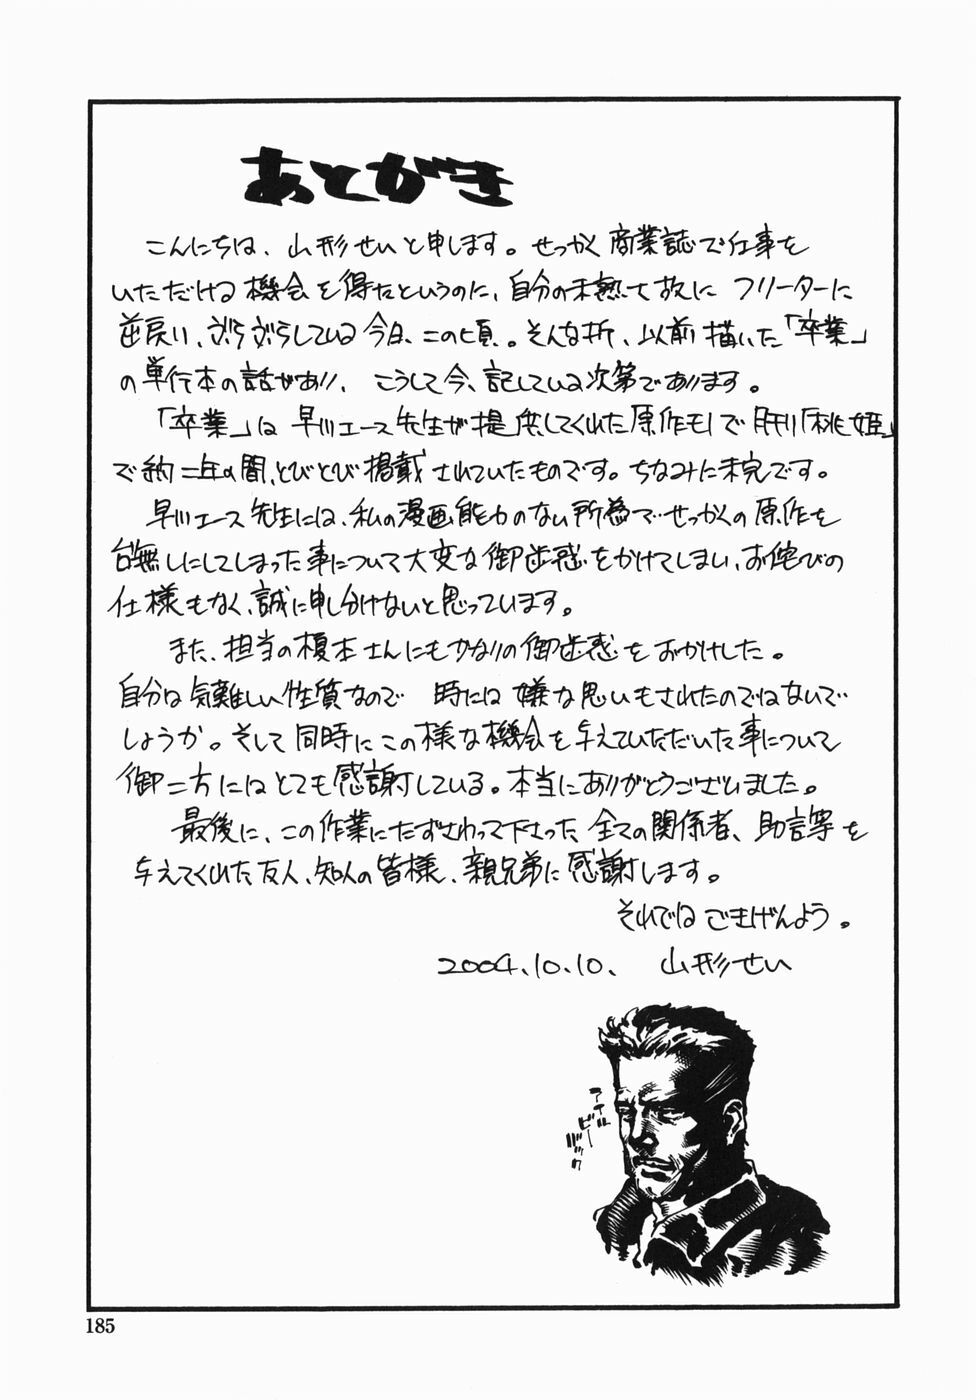 あとがき
こんにちは、山形せいと申します。せっかく商業誌で仕事を
いただける機会を得たというのに、自分の未熟さ故に フリーターに
逆戻り、ぶらぶらしている今日、この頃。そんな折、以前描いた「卒業」
の単行本の話があり、こうして今、記している次第であります。
「卒業」は早川エース先生が提供してくれた原作モノで月刊「桃姫」
で約二年の間、とびとび掲載されていたものです。ちなみに未完です。
早川エース先生には、私の漫画能力のない所為でせっかくの原作を
台無しにしてしまった事について大変な御迷惑をかけてしまい、お侘びの
仕様もなく、誠に申し分けないと思っています。
また、担当の榎本さんにもかなりの御迷惑をおかけした。
自分は気難しい性質なので 時には嫌な思いもされたのではないで
しょうか。そして同時にこの様な機会を与えていただいた事について
御二方にはとても感謝している。本当にありがとうございました。
最後に、この作業にたずさわって下さった全ての関係者、助言等を
与えてくれた友人、知人の皆様、親兄弟に感謝します。
それではごきげんよう。
2004.10.10、 山形せい
アイル
ビー
バック
185